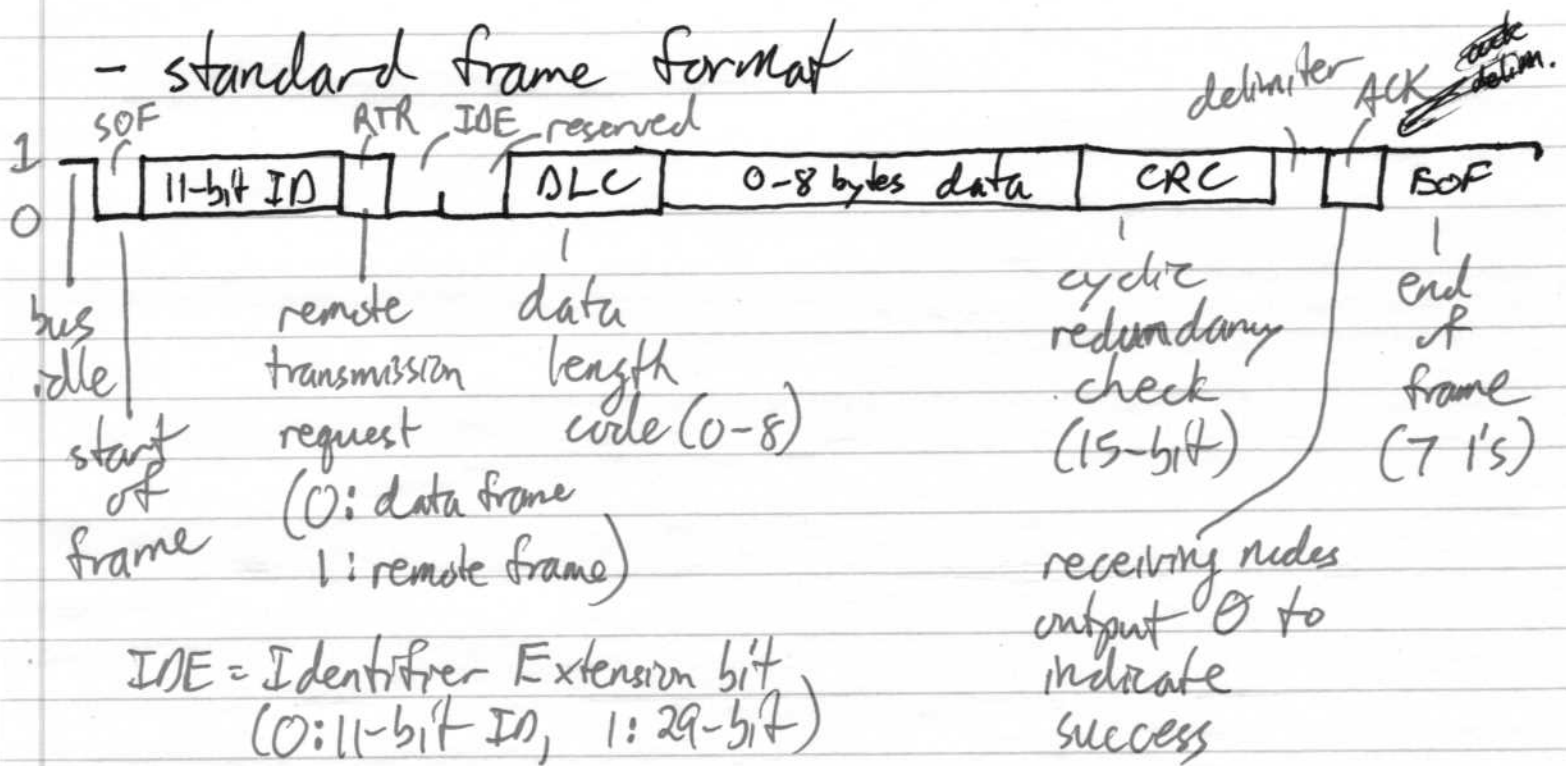 - standard frame format
SOF RTR IDE reserved delimiter ACK
1
11-bit ID DLC 0-8 bytes data CRC EOF
0
bus idle
start of frame
remote transmission request
(0: data frame
1: remote frame)
data length code (0-8)
cyclic redundancy check (15-bit)
end of frame (7 1's)
receiving nodes
output 0 to
indicate
success
IDE = Identifier Extension bit
(0: 11-bit ID, 1: 29-bit)